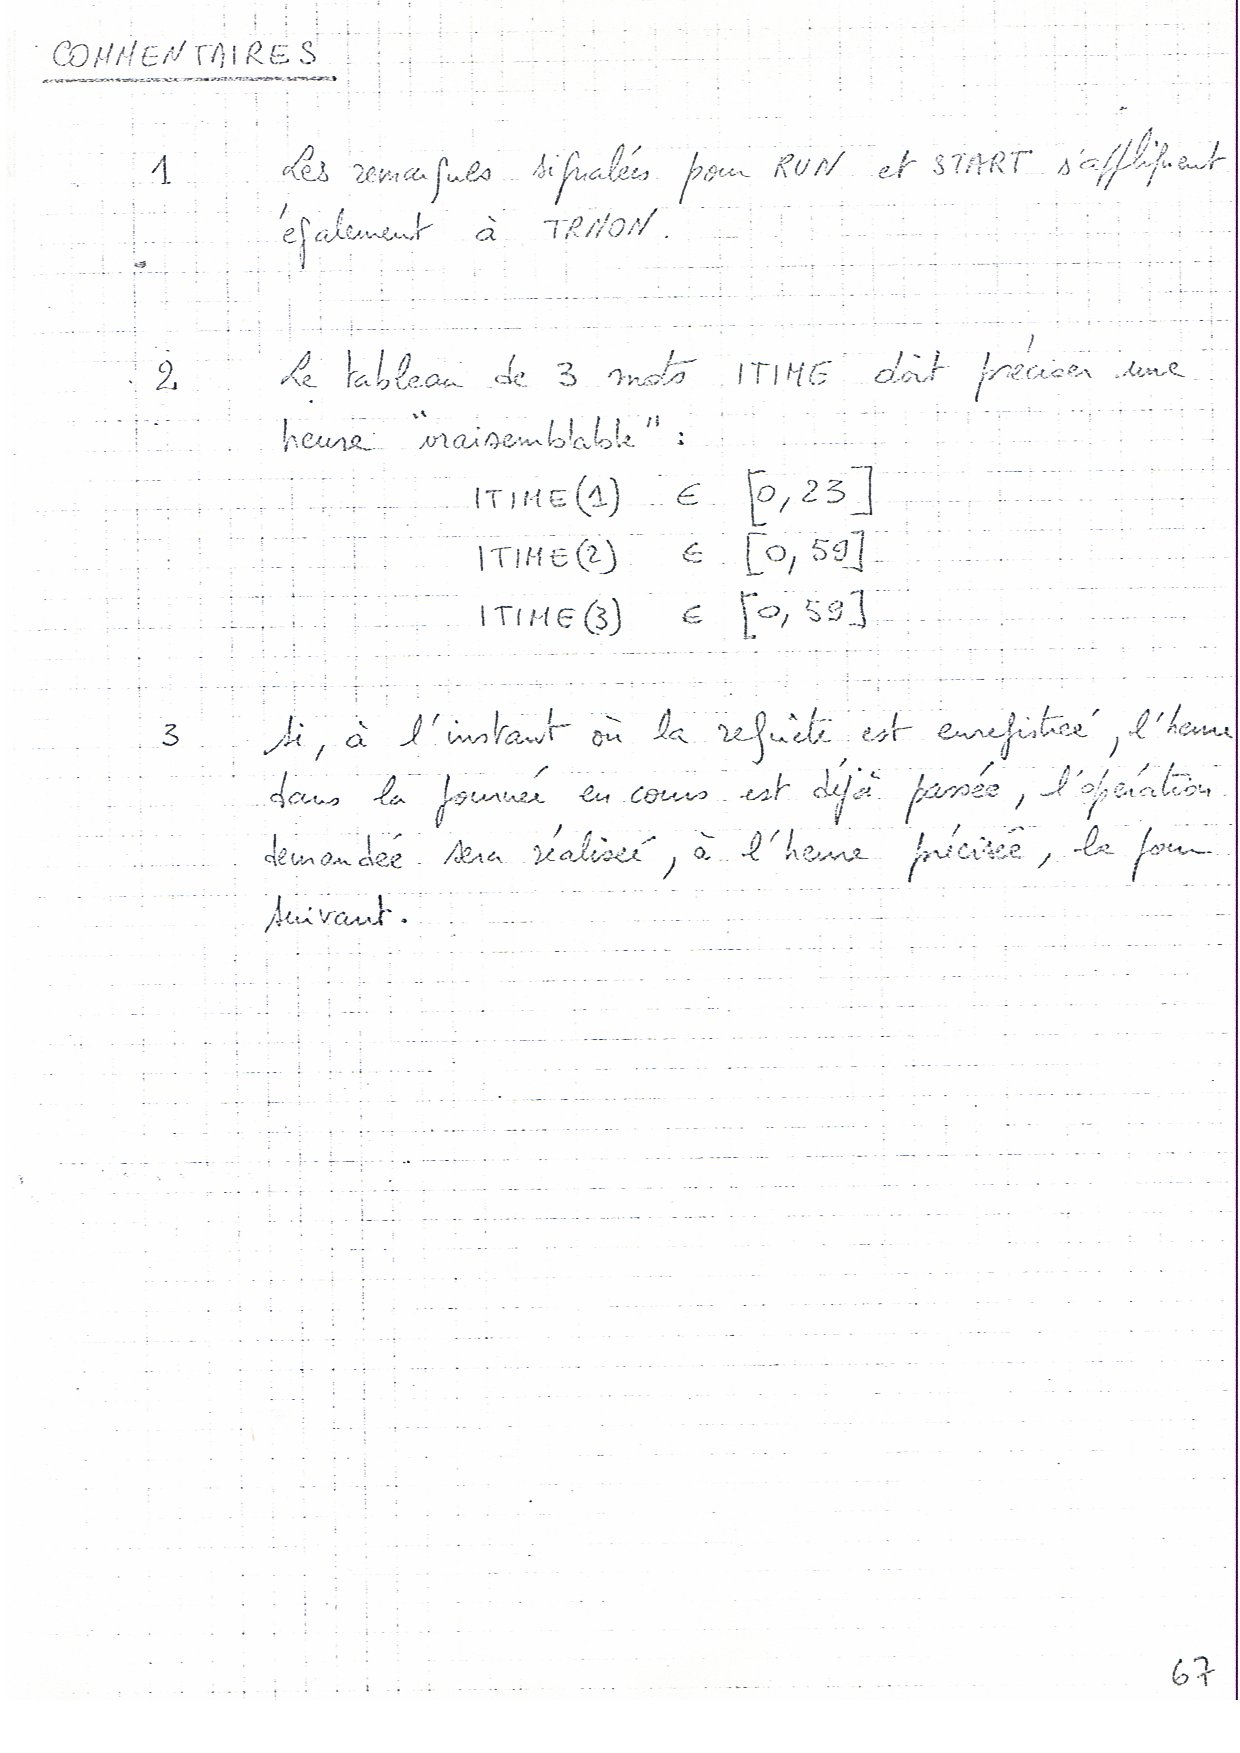 COMMENTAIRES
1 Les remarques signalées pour RUN et START s'appliquent
également à TRNON.
2 Le tableau de 3 mots ITIME doit préciser une
heure "vraisemblable" :
ITIME(1) ∈ [0, 23]
ITIME(2) ∈ [0, 59]
ITIME(3) ∈ [0, 59]
3 Si, à l'instant où la requête est enregistrée, l'heure
dans la journée en cours est déjà passée, l'opération
demandée sera réalisée, à l'heure précisée, le jour
suivant.
67